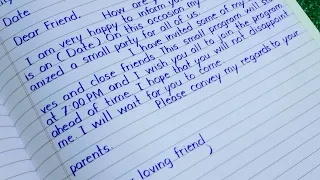 Date
Dear Friend,
How are
I am very happy to inform you
is on (Date) On this occasion my
anized a small party for all of us
I have invited some of my
ves and close friends. This small program will start
at 7:00 PM and I wish you all to join the program
ahead of time. I hope that you will not disappoint
me. I will wait for you to come.
Please convey my regards to your
parents.
loving friend,